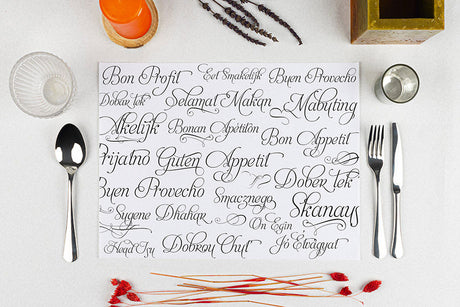 Bon Profit Eet Smakelijk Buen Provecho
Dobar tek Selamat Makan Mabuting
Akelijk Bonan Apetiton Bon Appetit
Prijatno Guten Appetit
Buen Provecho Smacznego Dober tek
Sygene Dhahar On Egin Skanaus
Dobrou Chut Jó Étvágyat